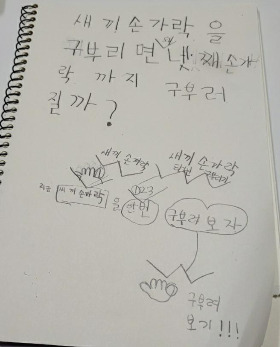 새끼손가락을
구부리면 왜 넷째손가
락 까지 구부러
질까?
새끼 손가락
새끼 손가락
새끼 손가락 을 한번 구부려 보자
구부려
보기!!!